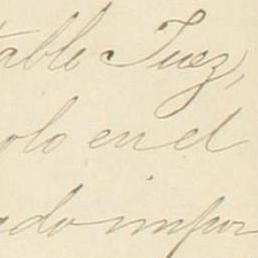 table Juez,
olo en el
ado impor